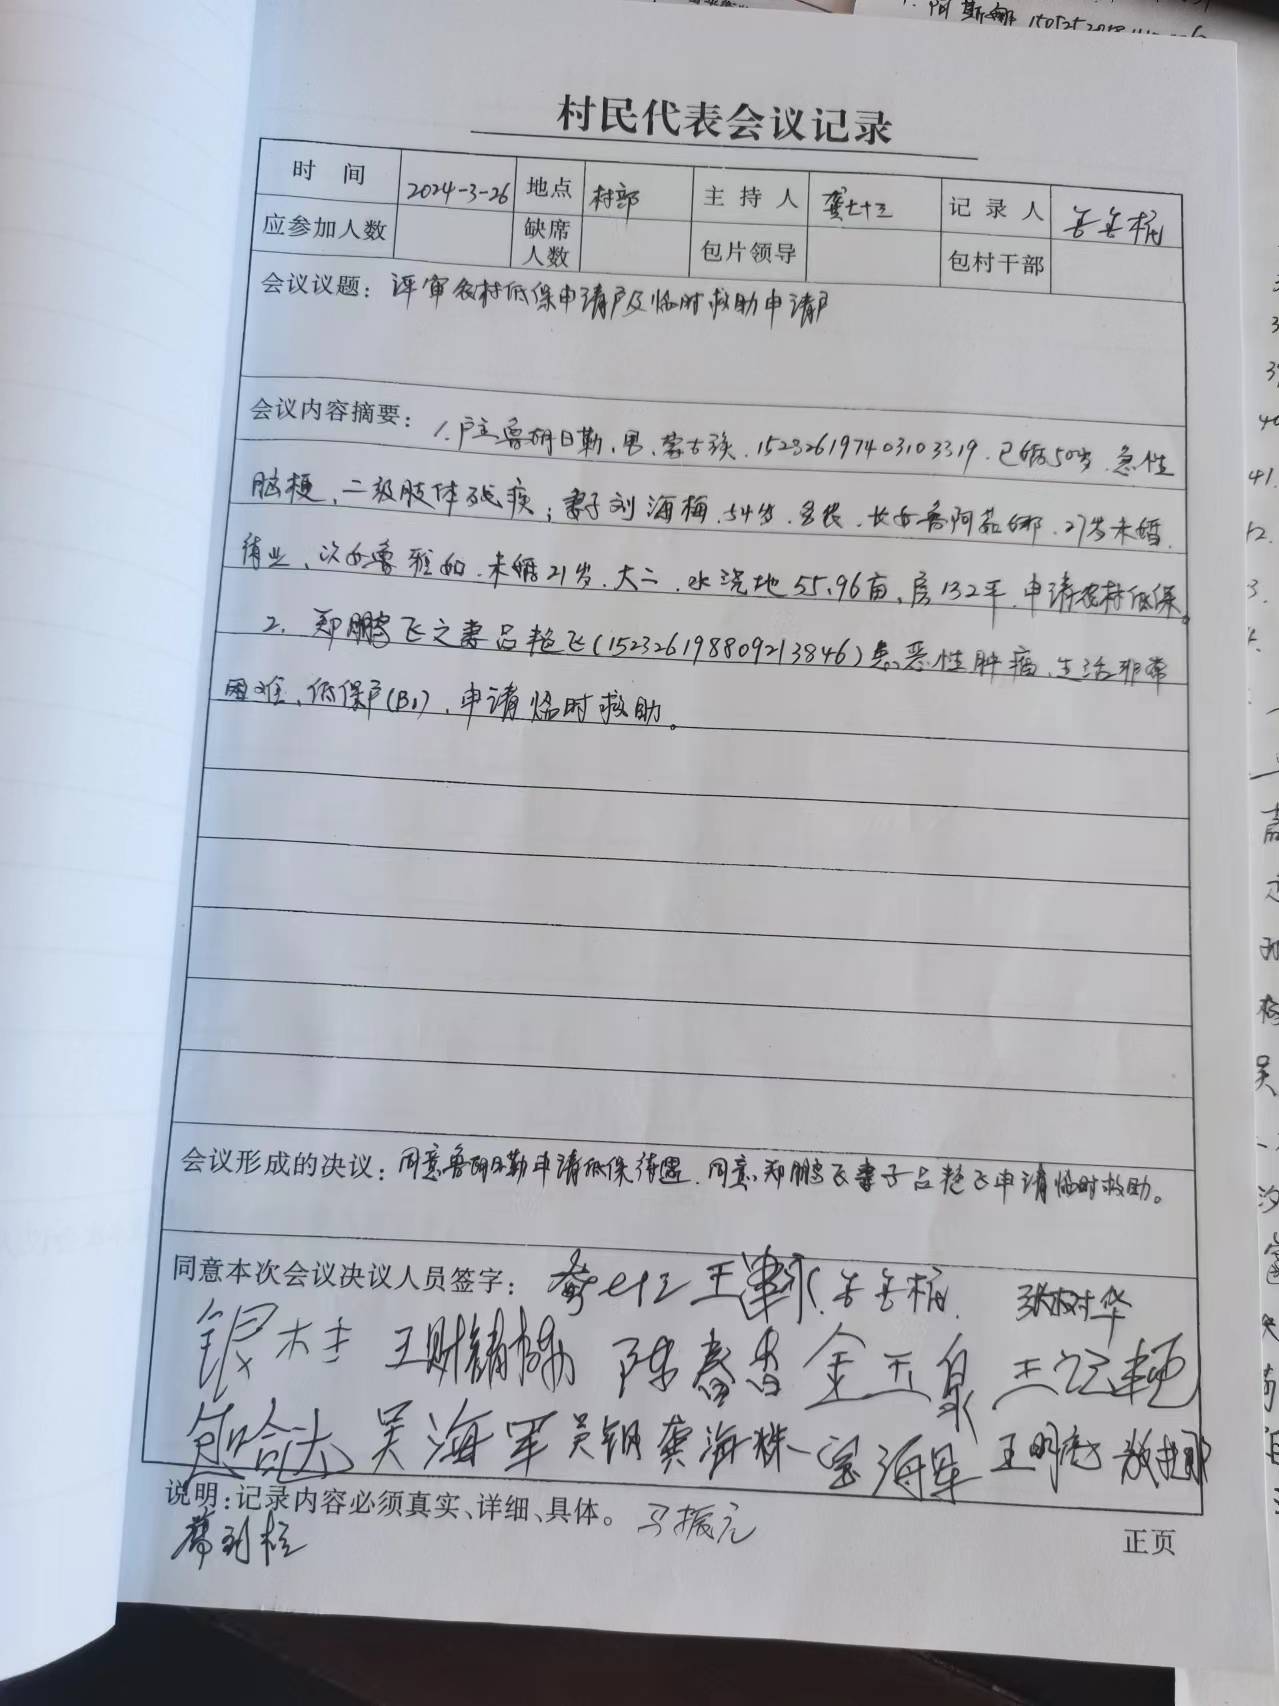 阿斯娜
村民代表会议记录
时 间 2024-3-26 地点 村部 主 持 人 龚七十三 记 录 人
应参加人数 缺席人数 包片领导 包村干部
会议议题：评审农村低保申请户及临时救助申请户
会议内容摘要：1.户主鲁胡日勒、男、蒙古族、152326197403103319、已婚50岁、急性
脑梗、二级肢体残疾；妻子刘海梅、54岁、务农、长女鲁阿茹娜、27岁未婚
待业、次女鲁雅如、未婚21岁、大二、水浇地55.96亩、房132平、申请农村低保。
2、郑鹏飞之妻吕艳飞(152326198809213846)患恶性肿瘤、生活非常
困难、低保户(B1)、申请临时救助。
会议形成的决议：同意鲁胡日勒申请低保待遇、同意郑鹏飞妻子吕艳飞申请临时救助。
同意本次会议决议人员签字： 张树华
银柱 陈春香 金玉泉
包哈达 吴海军 吴钢 龚海株 宝海军 王明亮
说明：记录内容必须真实、详细、具体。 马振元
正页